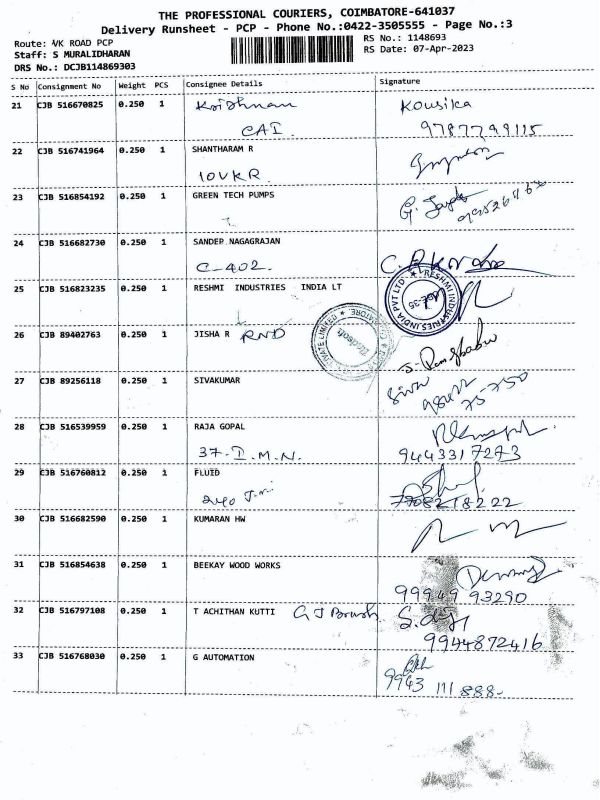 THE PROFESSIONAL COURIERS, COIMBATORE-641037
Delivery Runsheet - PCP - Phone No.:0422-3505555 - Page No.:3
Route: VK ROAD PCP
RS No.: 1148693
Staff: S MURALIDHARAN
RS Date: 07-Apr-2023
DRS No.: DCJB114869303
S No Consignment No Weight PCS Consignee Details Signature
21 CJB 516670825 0.250 1 Krishnan Kousika
CAI 9787799115
22 CJB 516741964 0.250 1 SHANTHARAM R
10VKR
23 CJB 516854192 0.250 1 GREEN TECH PUMPS
24 CJB 516682730 0.250 1 SANDEP NAGAGRAJAN
C-402.
25 CJB 516823235 0.250 1 RESHMI INDUSTRIES INDIA LT
RESHMI INDUSTRIES INDIA PVT LTD
26 CJB 89402763 0.250 1 JISHA R RND
27 CJB 89256118 0.250 1 SIVAKUMAR
75-750
28 CJB 516539959 0.250 1 RAJA GOPAL
37-I.M.N. 9443317273
29 CJB 516760812 0.250 1 FLUID
7708218222
30 CJB 516682590 0.250 1 KUMARAN HW
31 CJB 516854638 0.250 1 BEEKAY WOOD WORKS
99949 93290
32 CJB 516797108 0.250 1 T ACHITHAN KUTTI
9944872416
33 CJB 516768030 0.250 1 G AUTOMATION
9943 111 888-